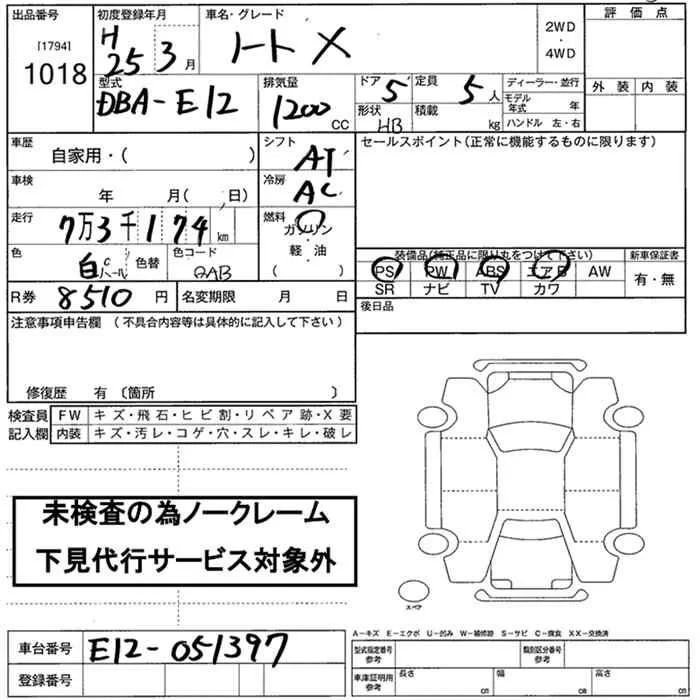 出品番号 [1794] 1018
初度登録年月 H25 3月
車名・グレード ノート X
2WD・4WD
評価点
外装 内装
型式 DBA-E12
排気量 1200 CC
ドア 5
形状 HB
定員 5人
積載 kg
ディーラー・並行
モデル年式 年
ハンドル 左・右
車歴 自家用・( )
シフト AT
セールスポイント(正常に機能するものに限ります)
車検 年 月( 日)
冷房 AC
走行 7万3千174 km
燃料 ガソリン・軽・油 ( )
色 白 色替
色コード QAB
装備品(純正品に限り丸をつけて下さい)
PS PW ABS エアB AW
SR ナビ TV カワ
新車保証書 有・無
R券 8510円
名変期限 月 日
後日品
注意事項申告欄 (不具合内容等は具体的に記入して下さい)
修復歴 有 〔箇所 〕
検査員記入欄
FW キズ・飛石・ヒビ割・リペア跡・X要
内装 キズ・汚レ・コゲ・穴・スレ・キレ・破レ
未検査の為ノークレーム
下見代行サービス対象外
スペア
車台番号 E12-051397
登録番号
A-キズ E-エクボ U-凹み W-補修跡 S-サビ C-腐食 XX-交換済
型式指定番号 参考
類別区分番号
車庫証明用 参考
長さ cm 幅 cm 高さ cm